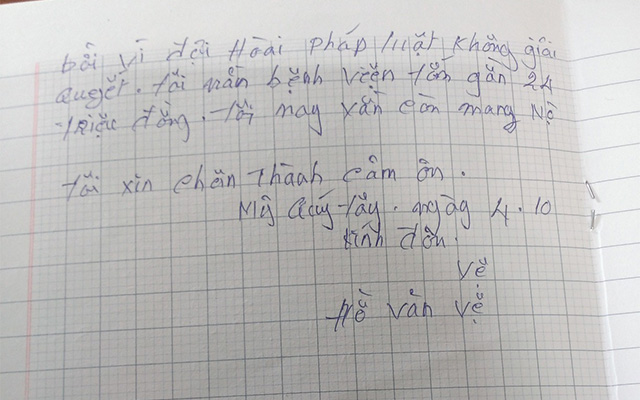 bồi vì đợi Hoài pháp luật không giải
quyết. tôi nằn bệnh viện tốn gần 24
triệu đồng. tới nay vẫn còn mang Nộ
tôi xin chân thành cảm ơn.
Mỹ Quý tây. ngày 4.10
kính đơn.
vệ
Hồ văn vệ